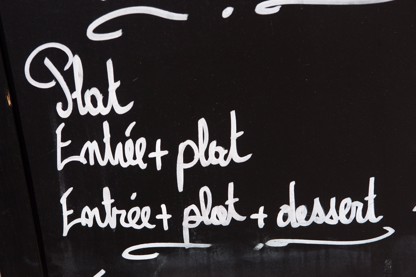 Plat
Entrée + plat
Entrée + plat + dessert